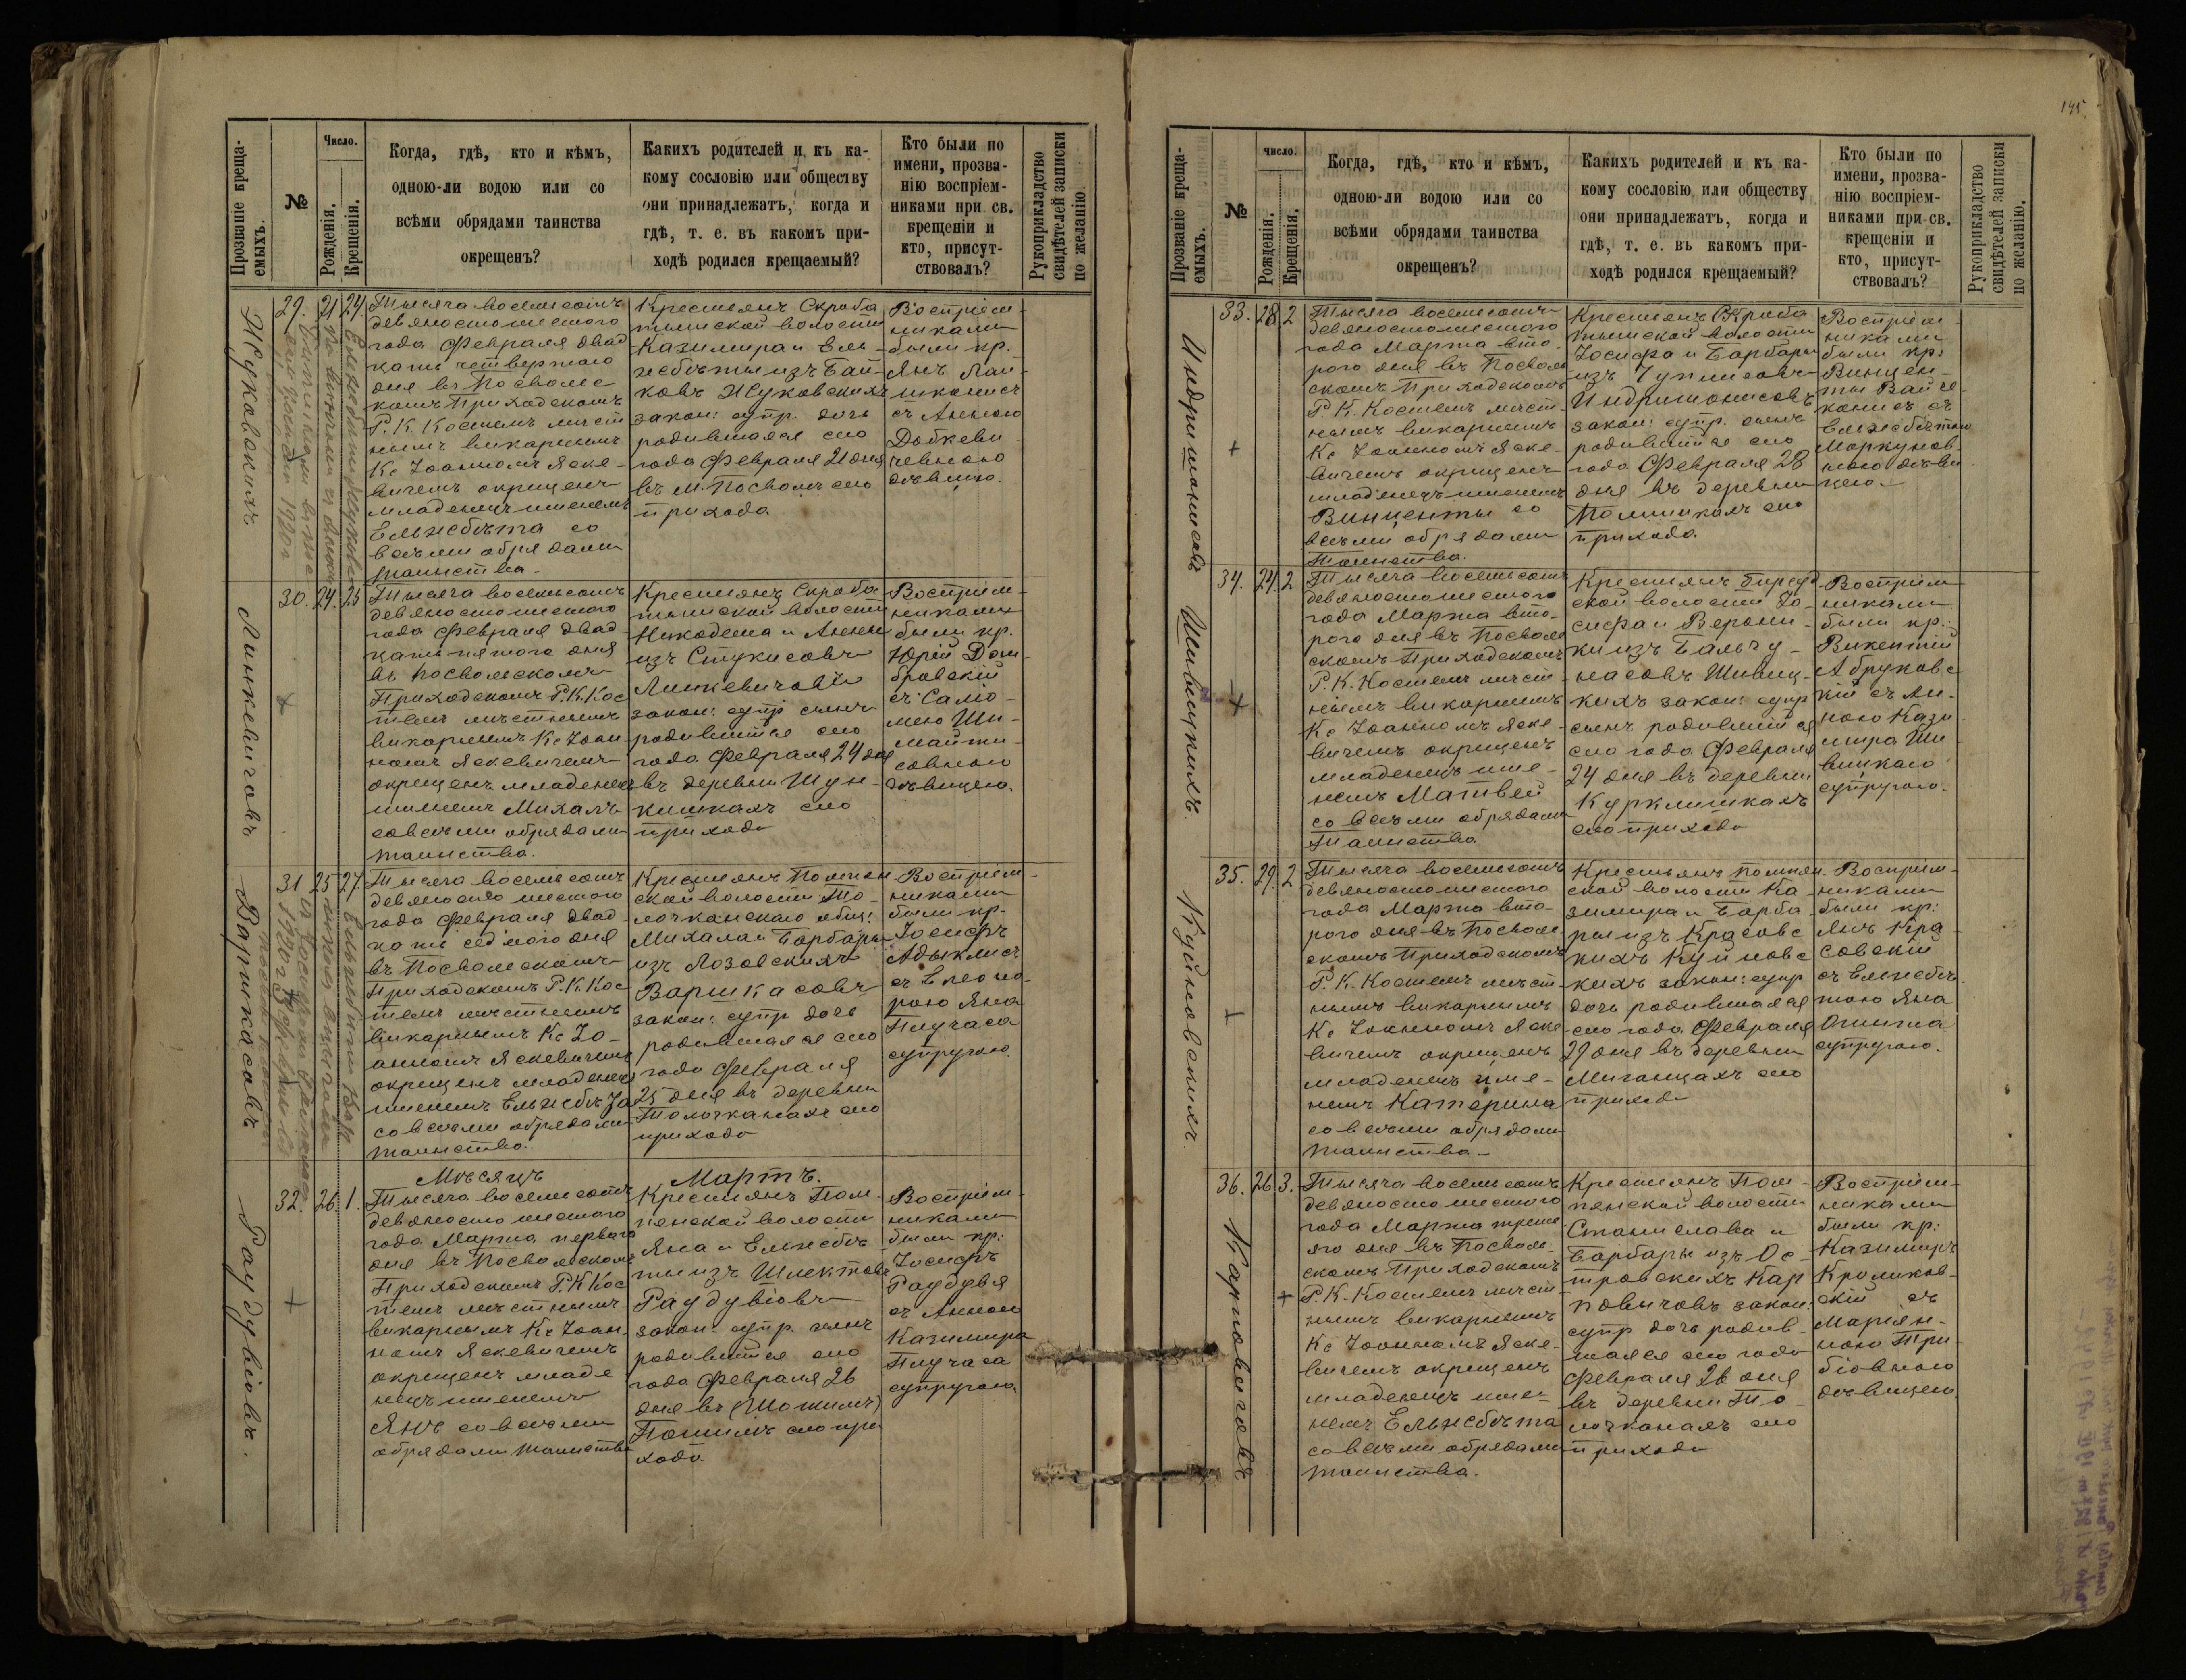 145.
Прозваніе креща-
емыхъ.
№
Число.
Рожденія.
Крещенія.
Когда, гдѣ, кто и кѣмъ,
одною-ли водою или со
всѣми обрядами таинства
окрещенъ?
Какихъ родителей и къ ка-
кому сословію или обществу
они принадлежатъ, когда и
гдѣ, т. е. въ какомъ при-
ходѣ родился крещаемый?
Кто были по
имени, прозва-
нію воспріем-
никами при св.
крещеніи и
кто, присут-
ствовалъ?
Рукоприкладство
свидѣтелей записки
по желанію.
Жуковскихъ
29. 21 24.
Тысяча восемьсотъ
девяносто шестого
года Февраля двад
цать четвертого
дня въ Посволь с
комъ Приходскомъ
Р. К. Костелѣ мѣст
нымъ викарнымъ
Кс Іоанномъ Яске-
вичемъ окрещенъ
младенецъ именемъ
Ельжбѣта со
всѣми обрядами
таинства.
Крестьянъ Скроба
тышской волости
Казимира и Ель-
жбѣты изъ Бай-
ковъ Жуковскихъ
закон: супр. дочь
родившаяся сего
года Февраля 21 дня
въ м. Посволѣ сего
прихода
Воспріем-
никами
были кр.
Янъ
съ Анною
Добкеви
чевною
дѣвицею.
Линкевичовъ
30. 24. 25
Тысяча восемьсотъ
девяносто шестого
года Февраля двад
цать пятого дня
въ Посвольскомъ
Приходскомъ Р. К. Кос
телѣ мѣстнымъ
викарнымъ Кс Іоан-
номъ Яскевичемъ
окрещенъ младенецъ
именемъ Михалъ
со всѣми обрядами
таинства.
Крестьянъ Скроба
тышской волости
Никодема и Анны
изъ Стукисовъ
Линкевичовъ
закон: супр сынъ
родившійся сего
года Февраля 24 дня
въ деревни Шун-
кишкахъ сего
прихода
Воспріем-
никами
были кр.
Юрій Дом
бровскій
съ Сало-
мею Ши-
майти-
совною
дѣвицею.
Варшкасовъ
31 25 27.
Тысяча восемьсотъ
девяносто шестого
года Февраля двад-
цать седьмого дня
въ Посвольскомъ
Приходскомъ Р. К. Кос
телѣ мѣстнымъ
викарнымъ Кс Іо-
анномъ Яскевичемъ
окрещенъ младенецъ
именемъ Ельжбѣта
со всѣми обрядами
таинства.
Крестьянъ Помпян
ской волости То-
лочканскаго общ:
Михала и Барбары
изъ Лозовскихъ
Варшкасовъ
закон: супр дочь
родившаяся сего
года Февраля
25 дня въ деревни
Толочканахъ сего
прихода
Воспріем-
никами
были кр.
Іосифъ
Адыклисъ
съ Елено
рою Яна
Плучаса
супругою.
Раудувіовъ.
Мѣсяцъ Мартъ.
32. 26. 1.
Тысяча восемьсотъ
девяносто шестого
года Марта первого
дня въ Посвольскомъ
Приходскомъ Р. К. Кос
телѣ мѣстнымъ
викарнымъ Кс Іоан-
номъ Яскевичемъ
окрещенъ младе
нецъ именемъ
Янъ со всѣми
обрядами таинства
Крестьянъ Пом-
пянской волости
Яна и Ельжбѣ
ты изъ Шлектовъ
Раудувіовъ
закон: супр. сынъ
родившійся сего
года Февраля 26
дня въ
сего при
хода
Воспріем-
никами
были кр:
Іосифъ
Раудувя
съ Анною
Казимира
Плучаса
супругою.
Прозваніе креща-
емыхъ.
№
число.
Рожденія.
Крещенія.
Когда, гдѣ, кто и кѣмъ,
одною-ли водою или со
всѣми обрядами таинства
окрещенъ?
Какихъ родителей и къ ка-
кому сословію или обществу
они принадлежатъ, когда и
гдѣ, т. е. въ какомъ при-
ходѣ родился крещаемый?
Кто были по
имени, прозва-
нію воспріем-
никами при св.
крещеніи и
кто, присут-
ствовалъ?
Рукоприкладство
свидѣтелей записки
по желанію.
Индришонисовъ
33. 28 2
Тысяча восемьсотъ
девяносто шестого
года Марта вто-
рого дня въ Посволь
скомъ Приходскомъ
Р. К. Костелѣ мѣст-
нымъ викарнымъ
Кс Іоанномъ Яске-
вичемъ окрещенъ
младенецъ именемъ
Винценты со
всѣми обрядами
таинства.
Крестьянъ Скроба
тышской волости
Іосифа и Барбары
изъ
Индришонисовъ
закон: супр. сынъ
родившійся сего
года Февраля 28
дня въ деревни
сего
прихода.
Воспріем-
никами
были кр:
Винцен-
ты Вайче
конисъ съ
Ельжбѣтою
Моркунов
ною дѣви
цею.
Шивицкихъ.
34. 24. 2
Тысяча восемьсотъ
девяносто шестого
года Марта вто-
рого дня въ Посволь
скомъ Приходскомъ
Р. К. Костелѣ мѣст-
нымъ викарнымъ
Кс Іоанномъ Яске-
вичемъ окрещенъ
младенецъ име-
немъ Матвей
со всѣми обрядами
Таинства.
Крестьянъ Биржа
ской волости Іо-
сифа и Верони-
ки изъ Бальчу-
насовъ Шивиц-
кихъ закон: супр
сынъ родившійся
сего года Февраля
24 дня въ деревни
Курклишкахъ
сего прихода
Воспріем-
никами
были кр.:
Викентій
Абруковс
кій съ Ан-
ною Кази
мира Ши
вицкаго
супругою.
Куйновскихъ.
35. 29. 2
Тысяча восемьсотъ
девяносто шестого
года Марта вто-
рого дня въ Посволь
скомъ Приходскомъ
Р. К. Костелѣ мѣст-
нымъ викарнымъ
Кс Іоанномъ Яске-
вичемъ окрещенъ
младенецъ име-
немъ Катерина
со всѣми обрядами
таинства.
Крестьянъ Помпян-
ской волости Ка-
зимира и Барба
ры изъ Красовс
кихъ Куйновс
кихъ закон: супр
дочь родившаяся
сего года Февраля
29 дня въ деревни
Миганцахъ сего
прихода
Воспріем-
никами
были кр:
Янъ Кра-
совскій
съ Ельжбѣ-
тою Яна
супругою.
Карповичовъ
36. 26 3.
Тысяча восемьсотъ
девяносто шестого
года Марта треть
яго дня въ Посволь-
скомъ Приходскомъ
Р. К. Костелѣ мѣст-
нымъ викарнымъ
Кс Іоанномъ Яске-
вичемъ окрещенъ
младенецъ име-
немъ Ельжбѣта
со всѣми обрядами
таинства.
Крестьянъ Пом-
пянской волости
Станислава и
Барбары изъ Ос-
тровскихъ Кар
повичовъ закон:
супр дочь родив-
шаяся сего года
Февраля 26 дня
въ деревни То-
лочканахъ сего
прихода
Воспріем-
никами
были кр:
Казимиръ
Кроликов-
скій съ
Маріян-
ною Три-
біовною
дѣвицею.